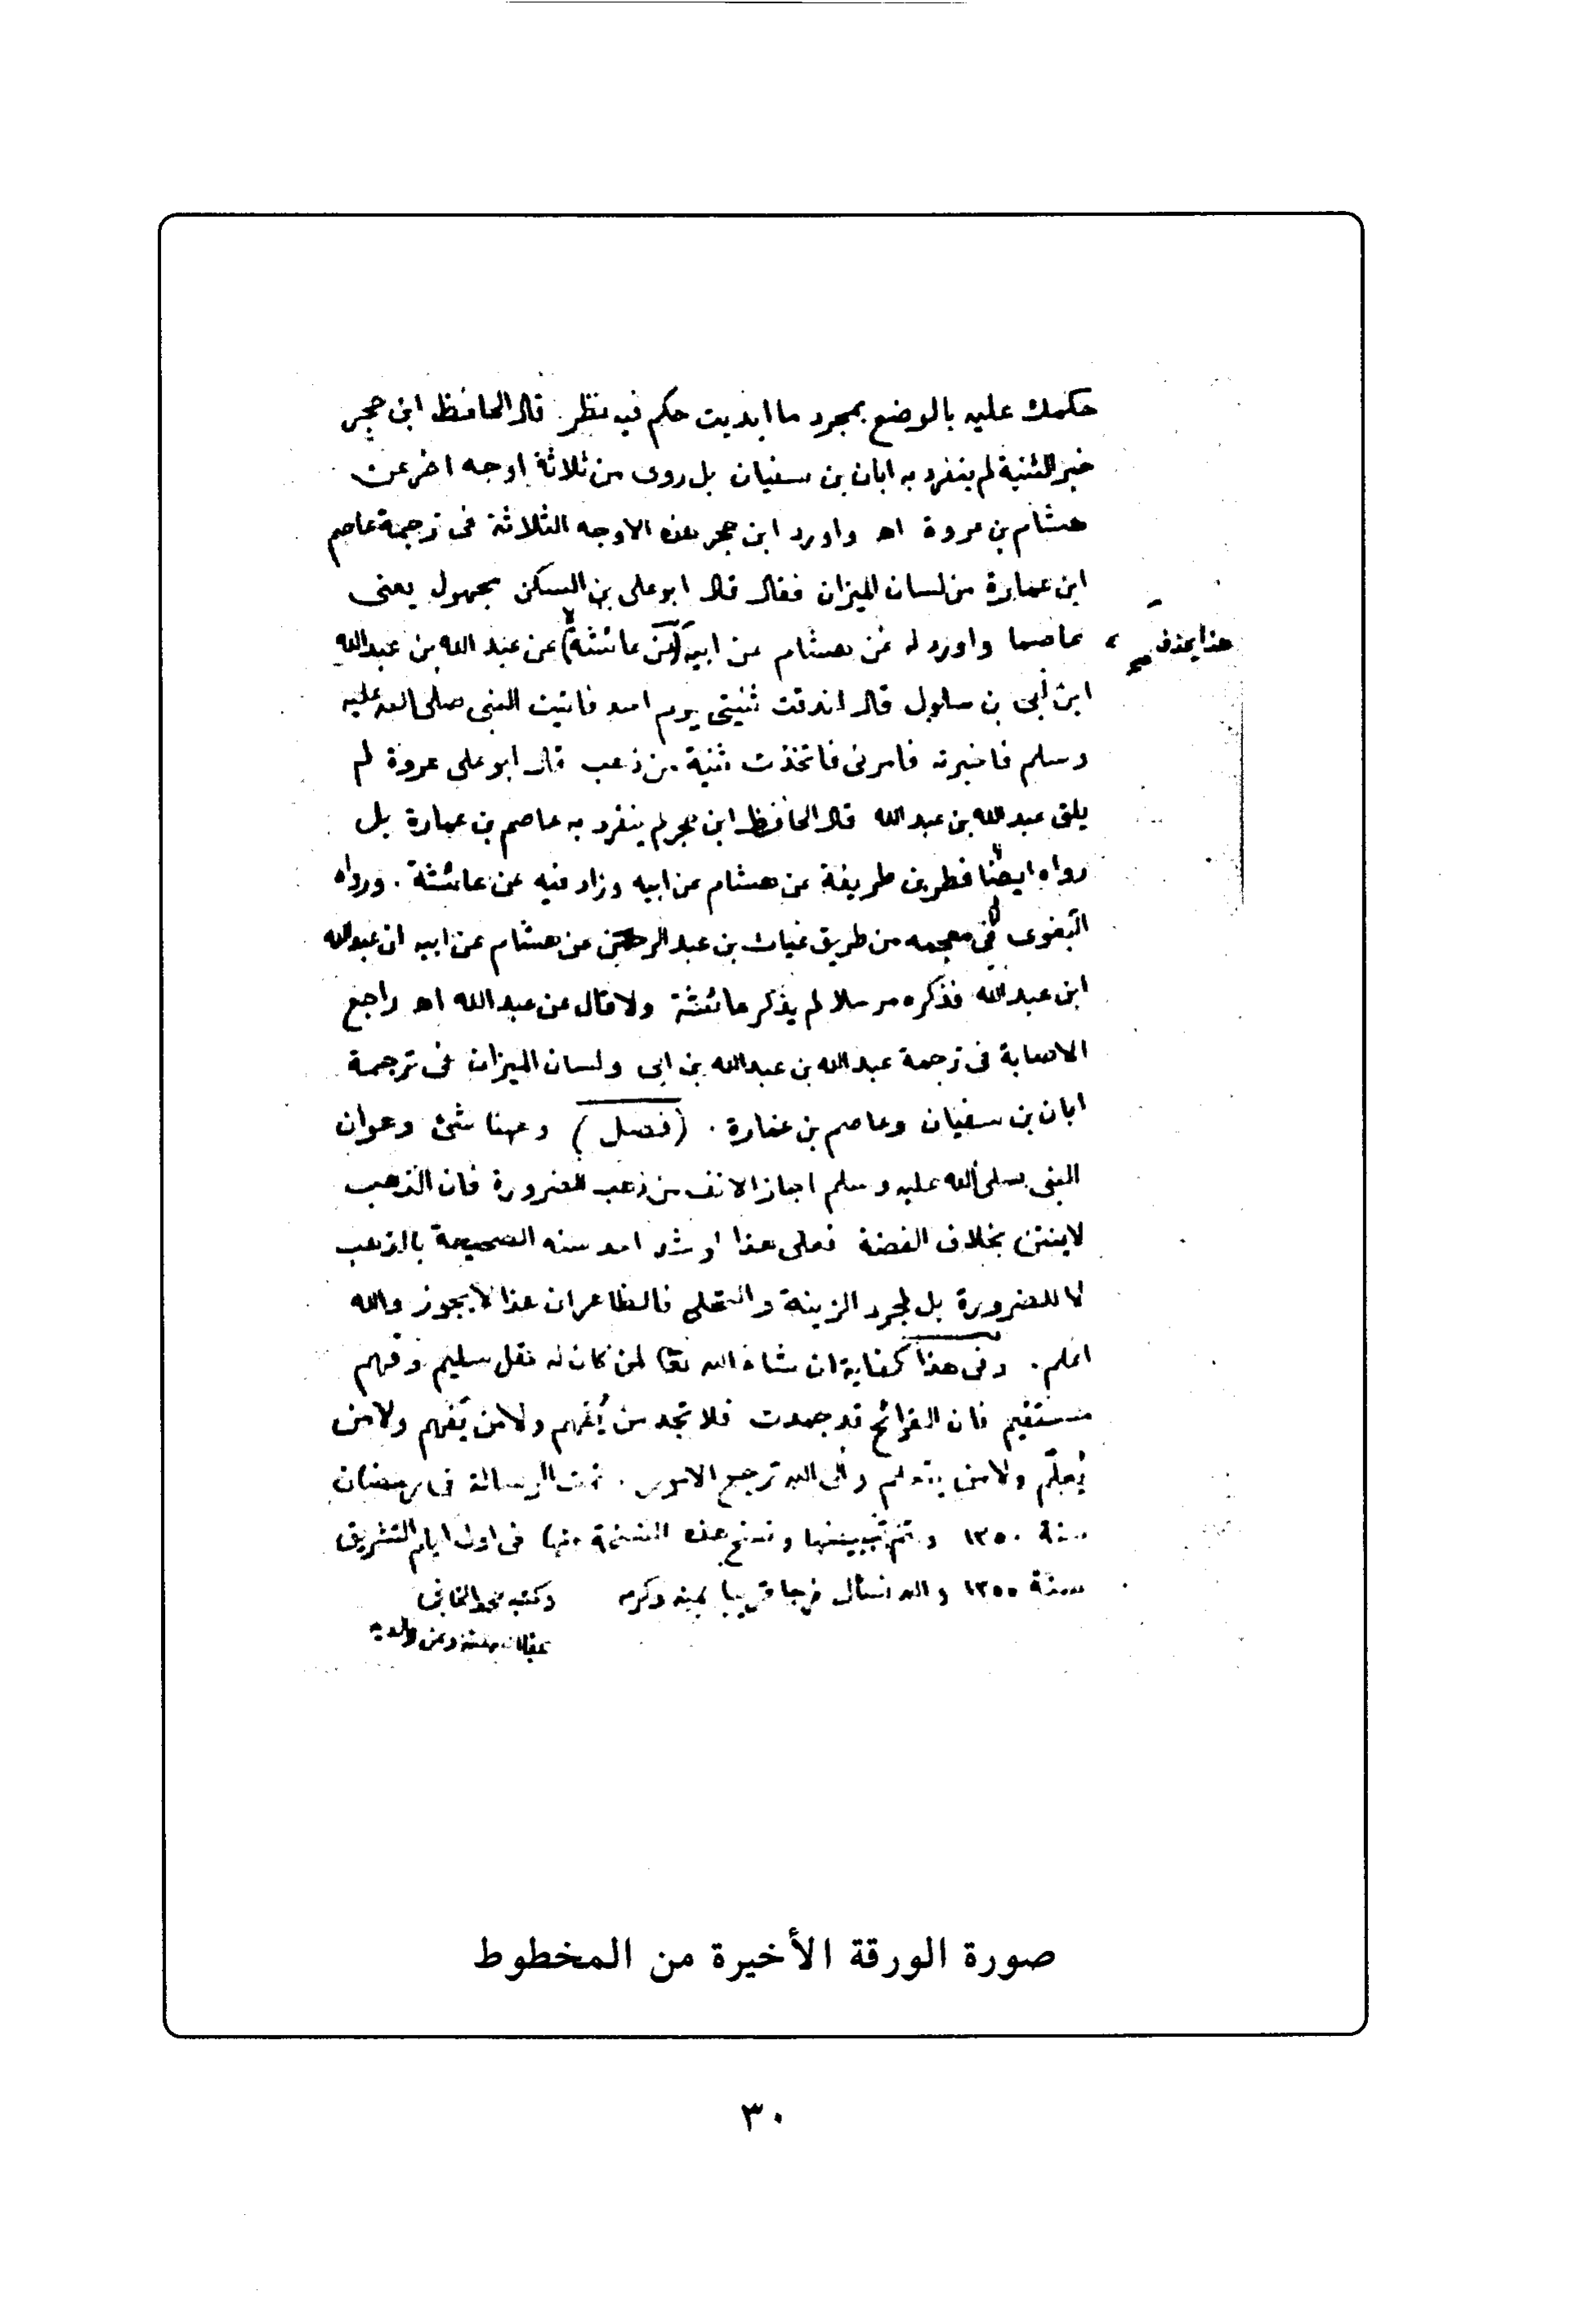 حكمك عليه بالوضع بمجرد ما ابديت حكم فيه نظر. قال الحافظ ابن حجر
خبر الثنية لم ينفرد به ابان بن سفيان بل روى من ثلاثة اوجه اخر عن
هشام بن عروة اه واورد ابن حجر هذه الاوجه الثلاثة فى ترجمة عاصم
ابن عمارة من لسان الميزان فقال قال ابو على بن السكن مجهول يعنى
عاصما واورد له عن هشام عن ابيه (عن عائشة) عن عبد الله بن عبدالله
هذا يحذف
ابن أبى بن سلول قال اندقت ثنيتى يوم احد فاتيت النبى صلى الله عليه
وسلم فاخبرته فامرنى فاتخذت ثنية من ذهب قال ابو على عروة لم
يلق عبد الله بن عبد الله قال الحافظ ابن حجر لم ينفرد به عاصم بن عمارة بل
رواه ايضا فطر بن طريفة عن هشام عن ابيه وزاد فيه عن عائشة. ورواه
البغوى فى معجمه من طريق غياث بن عبد الرحمن عن هشام عن ابيه ان عبدالله
ابن عبد الله فذكره مرسلا لم يذكر عائشة ولا قال عن عبد الله اه راجع
الاصابة فى ترجمة عبد الله بن عبد الله بن ابى ولسان الميزان فى ترجمة
ابان بن سفيان وعاصم بن عمارة. (فصل) وههنا شئ وهو ان
النبى صلى الله عليه وسلم اجاز الانف من ذهب للضرورة فان الذهب
لا ينتن بخلاف الفضة فعلى هذا لو شد احد سنه الصحيحة بالذهب
لا للضرورة بل لمجرد الزينة والتحلى فالظاهر ان هذا لا يجوز والله
اعلم. وفى هذا كفاية ان شاء الله تعا لمن كان له عقل سليم وفهم
مستقيم فان القرائح قد جمدت فلا تجد من يُفهم ولا من يَفهم ولا من
يُعلّم ولا من يتعلم والى الله ترجع الامور. تمت الرسالة فى رمضان
سنة ١٣٥٠ وتم تبييضها ونسخ هذه النسخة منها فى اول ايام التشريق
سنة ١٣٥٥ والله نسأل فرجا قريبا بمنه وكرمه وكتبه محمد
عفا الله عنه وعن والديه
صورة الورقة الأخيرة من المخطوط
٣٠